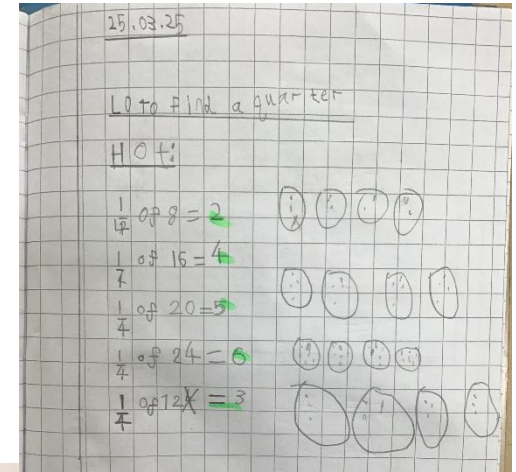 25.03.25
LO to find a quarter
Hot:
1/4 of 8 = 2
1/4 of 16 = 4
1/4 of 20 = 5
1/4 of 24 = 6
1/4 of 12 = 3